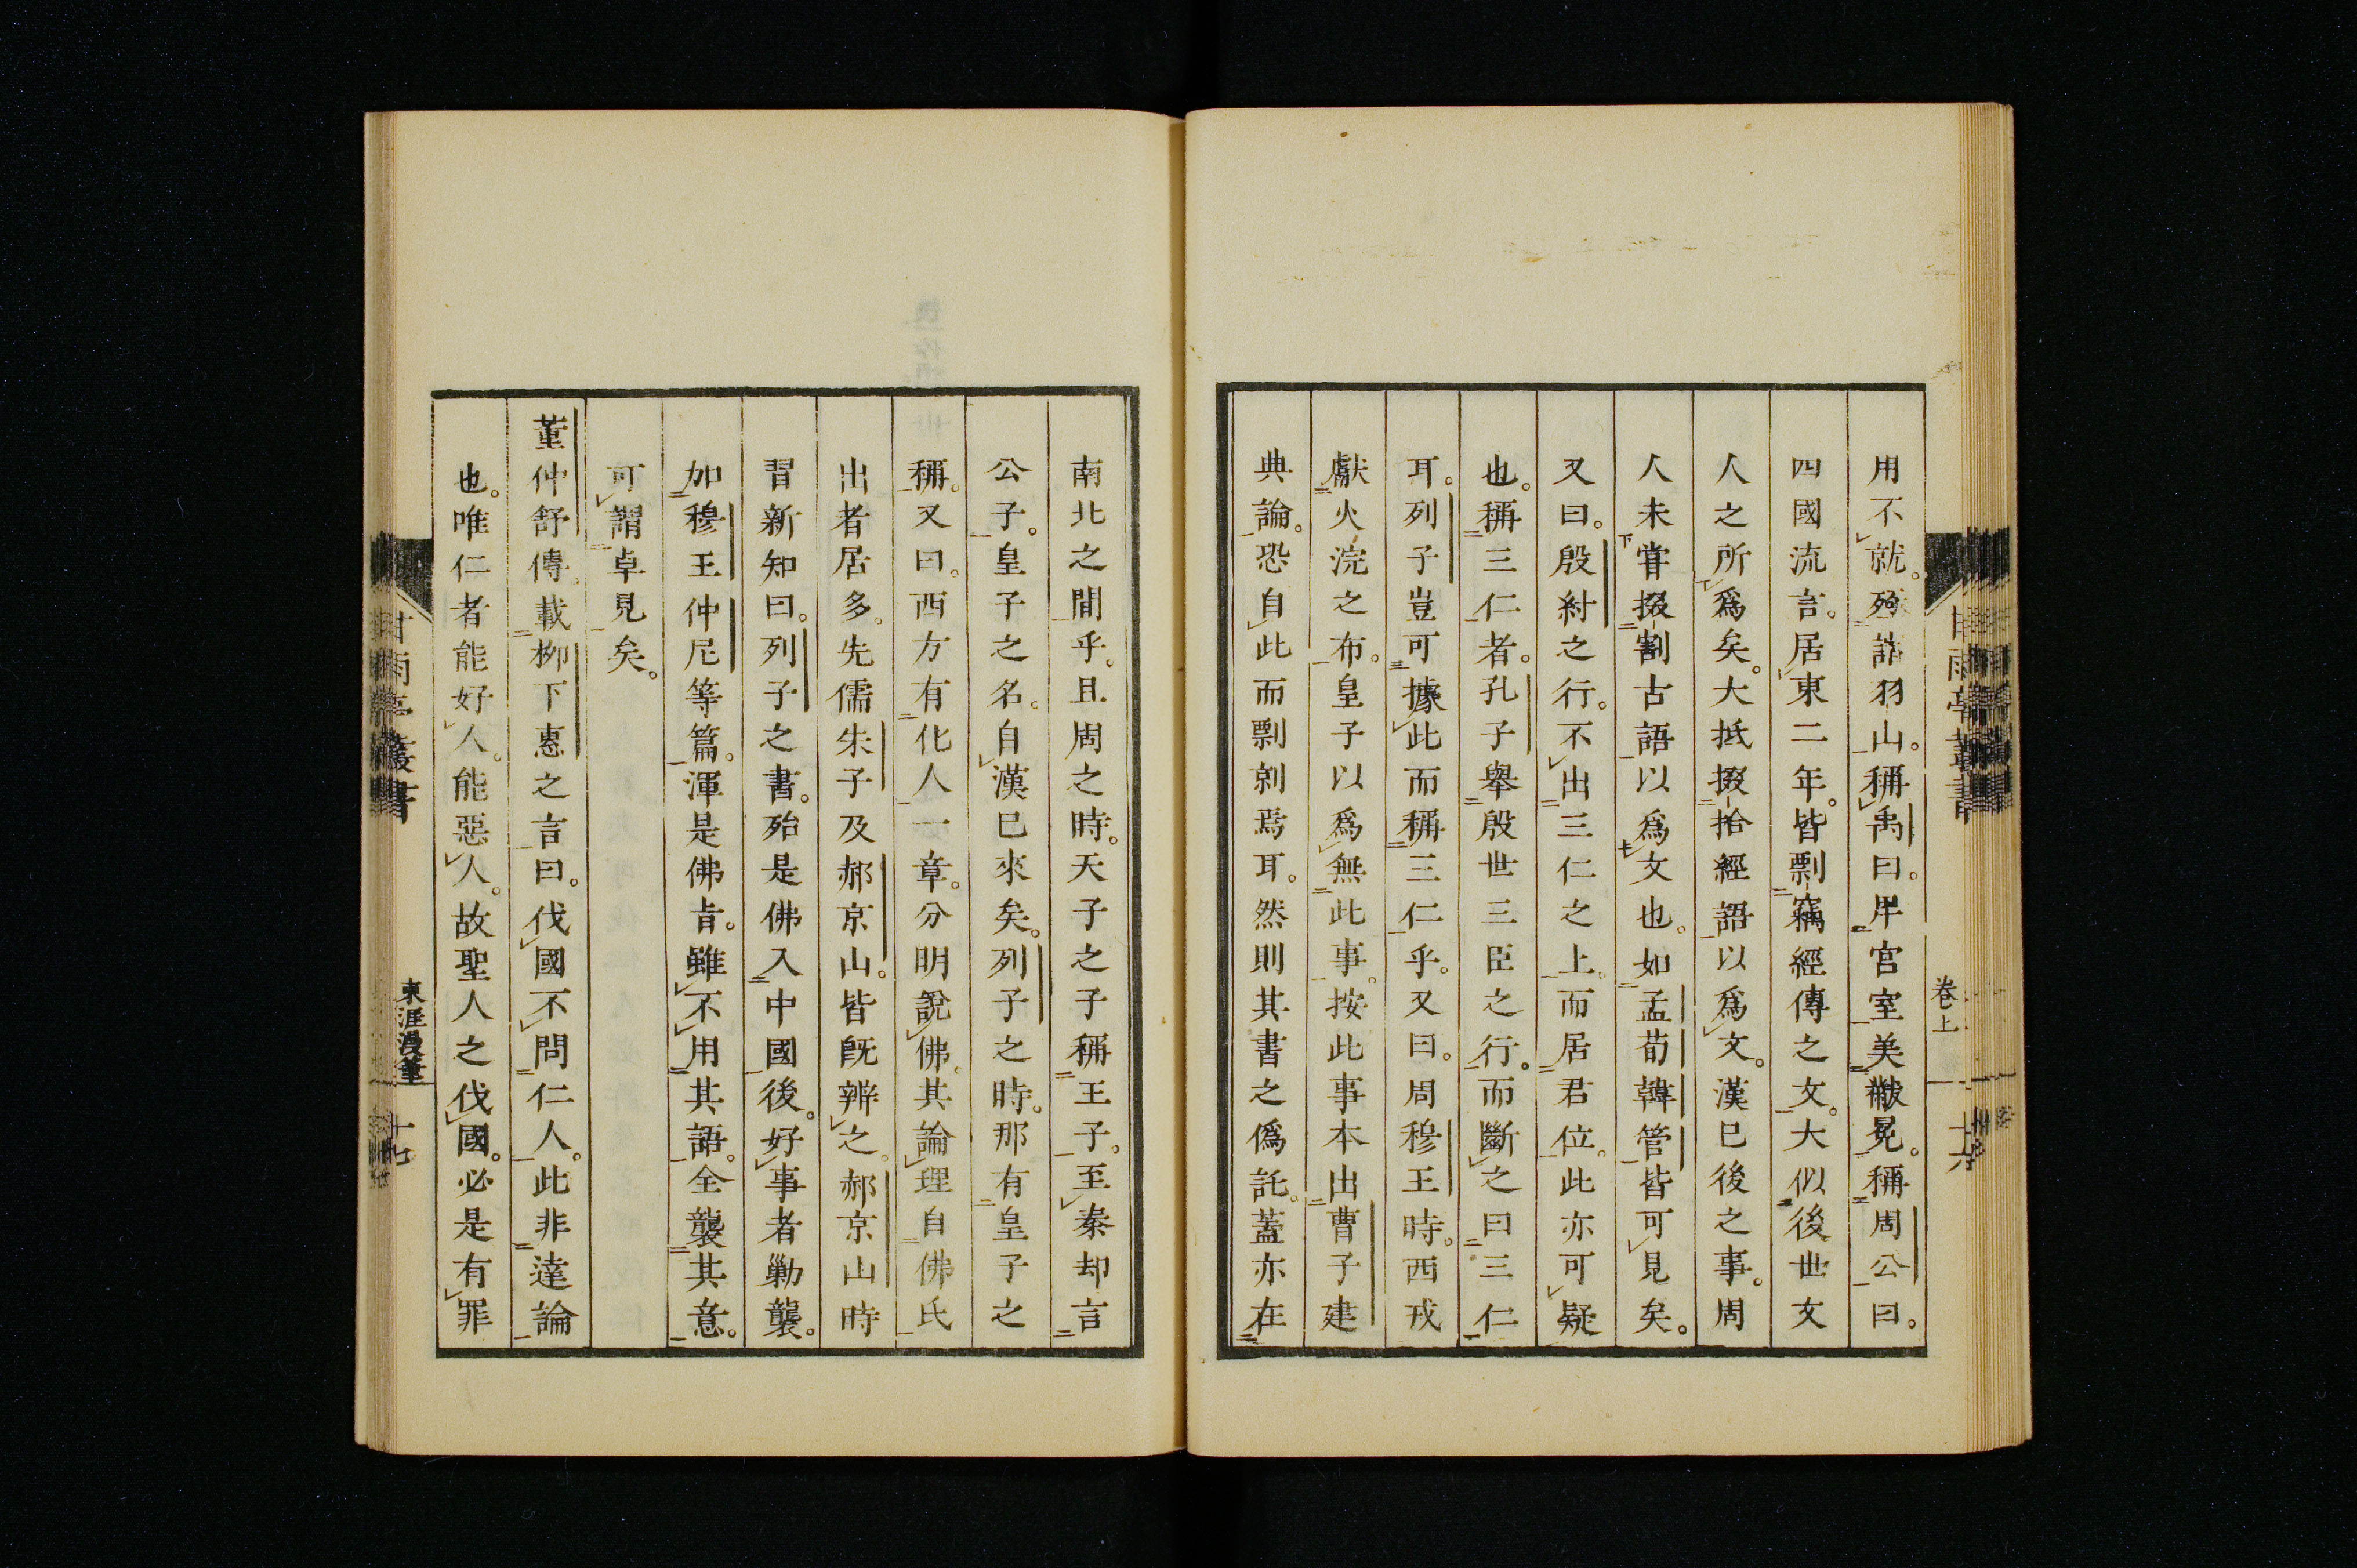 用不就。殛諸羽山。稱禹曰。卑宮室美黻冕。稱周公曰。
四國流言。居東二年。皆剽竊經傳之文。大似後世文
人之所爲矣。大抵掇拾經語以爲文。漢已後之事。周
人未甞掇割古語以爲文也。如孟荀韓管皆可見矣。
又曰。殷紂之行。不出三仁之上。而居君位。此亦可疑
也。稱三仁者。孔子舉殷世三臣之行。而斷之曰三仁
耳。列子豈可據此而稱三仁乎。又曰。周穆王時。西戎
獻火浣之布。皇子以爲無此事。按此事本出曹子建
典論。恐自此而剽剝焉耳。然則其書之僞託。蓋亦在
卷上
十六
南北之間乎。且周之時。天子之子稱王子。至秦却言
公子。皇子之名。自漢已來矣。列子之時。那有皇子之
稱。又曰。西方有化人一章。分明說佛。其論理自佛氏
出者居多。先儒朱子及郝京山。皆既辨之。郝京山時
習新知曰。列子之書。殆是佛入中國後。好事者勦襲。
如穆王仲尼等篇。渾是佛旨。雖不用其語。全襲其意。
可謂卓見矣。
董仲舒傳。載柳下惠之言曰。伐國不問仁人。此非達論
也。唯仁者能好人。能惡人。故聖人之伐國。必是有罪
甘雨亭叢書
東涯漫筆
十七